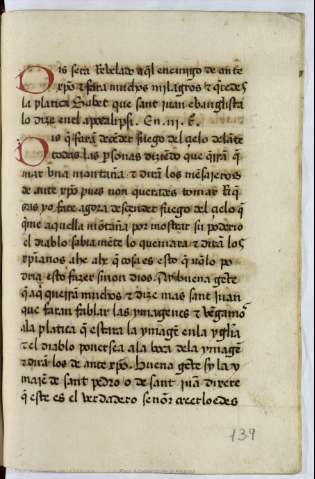 Dis sera Rebelado aql enemigo de ante
xpõ & fara muchos milagros & qredes
la platica Sabet que sant juan ebangelista
lo dize enel apocalipsi. En. iii. E.
Dis q fara deçeder fuego del çielo delãte
todas las psonas diziẽdo que qira q
mar vna montaña & dirã los mesajeros
de ante xpõ pues non queredes tomar
yo fare agora desçender fuego del çielo q
queme aquella mõtaña por mostrar su poderio
el diablo sabia mẽte lo quemara & dirã los
xpianos ahe ahe q cosa es esto q nõ lo po
dria esto fazer sinon dios. buena gẽte
q aq muchos & dize mas sant juan
que faran fablar las ymagenes & vengamos
ala platica q estara la ymagẽ en la yglia
& el diablo ponersea ala boca dela ymagẽ
& dirã los de ante xpõ. buena gẽte sy la y
majẽ de sant pedro o de sant juã dixere
q este es el verdadero señor creerloedes
139